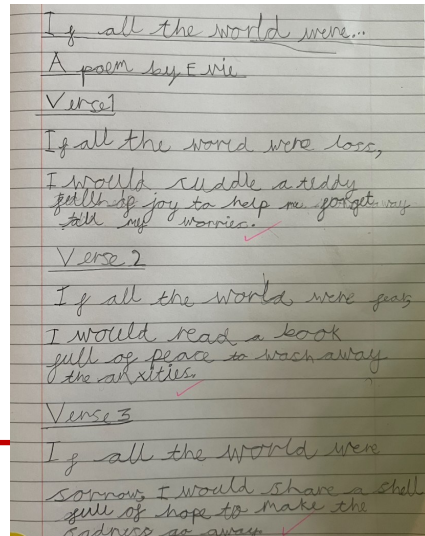 If all the world were...
A poem by Evie
Verse 1
If all the world were loss,
I would cuddle a teddy
full of joy to help me forget
my worries.
Verse 2
If all the world were fear,
I would read a book
full of peace to wash away
the anxities.
Verse 3
If all the world were
sorrow, I would share a shell
full of hope to make the
sadness go away